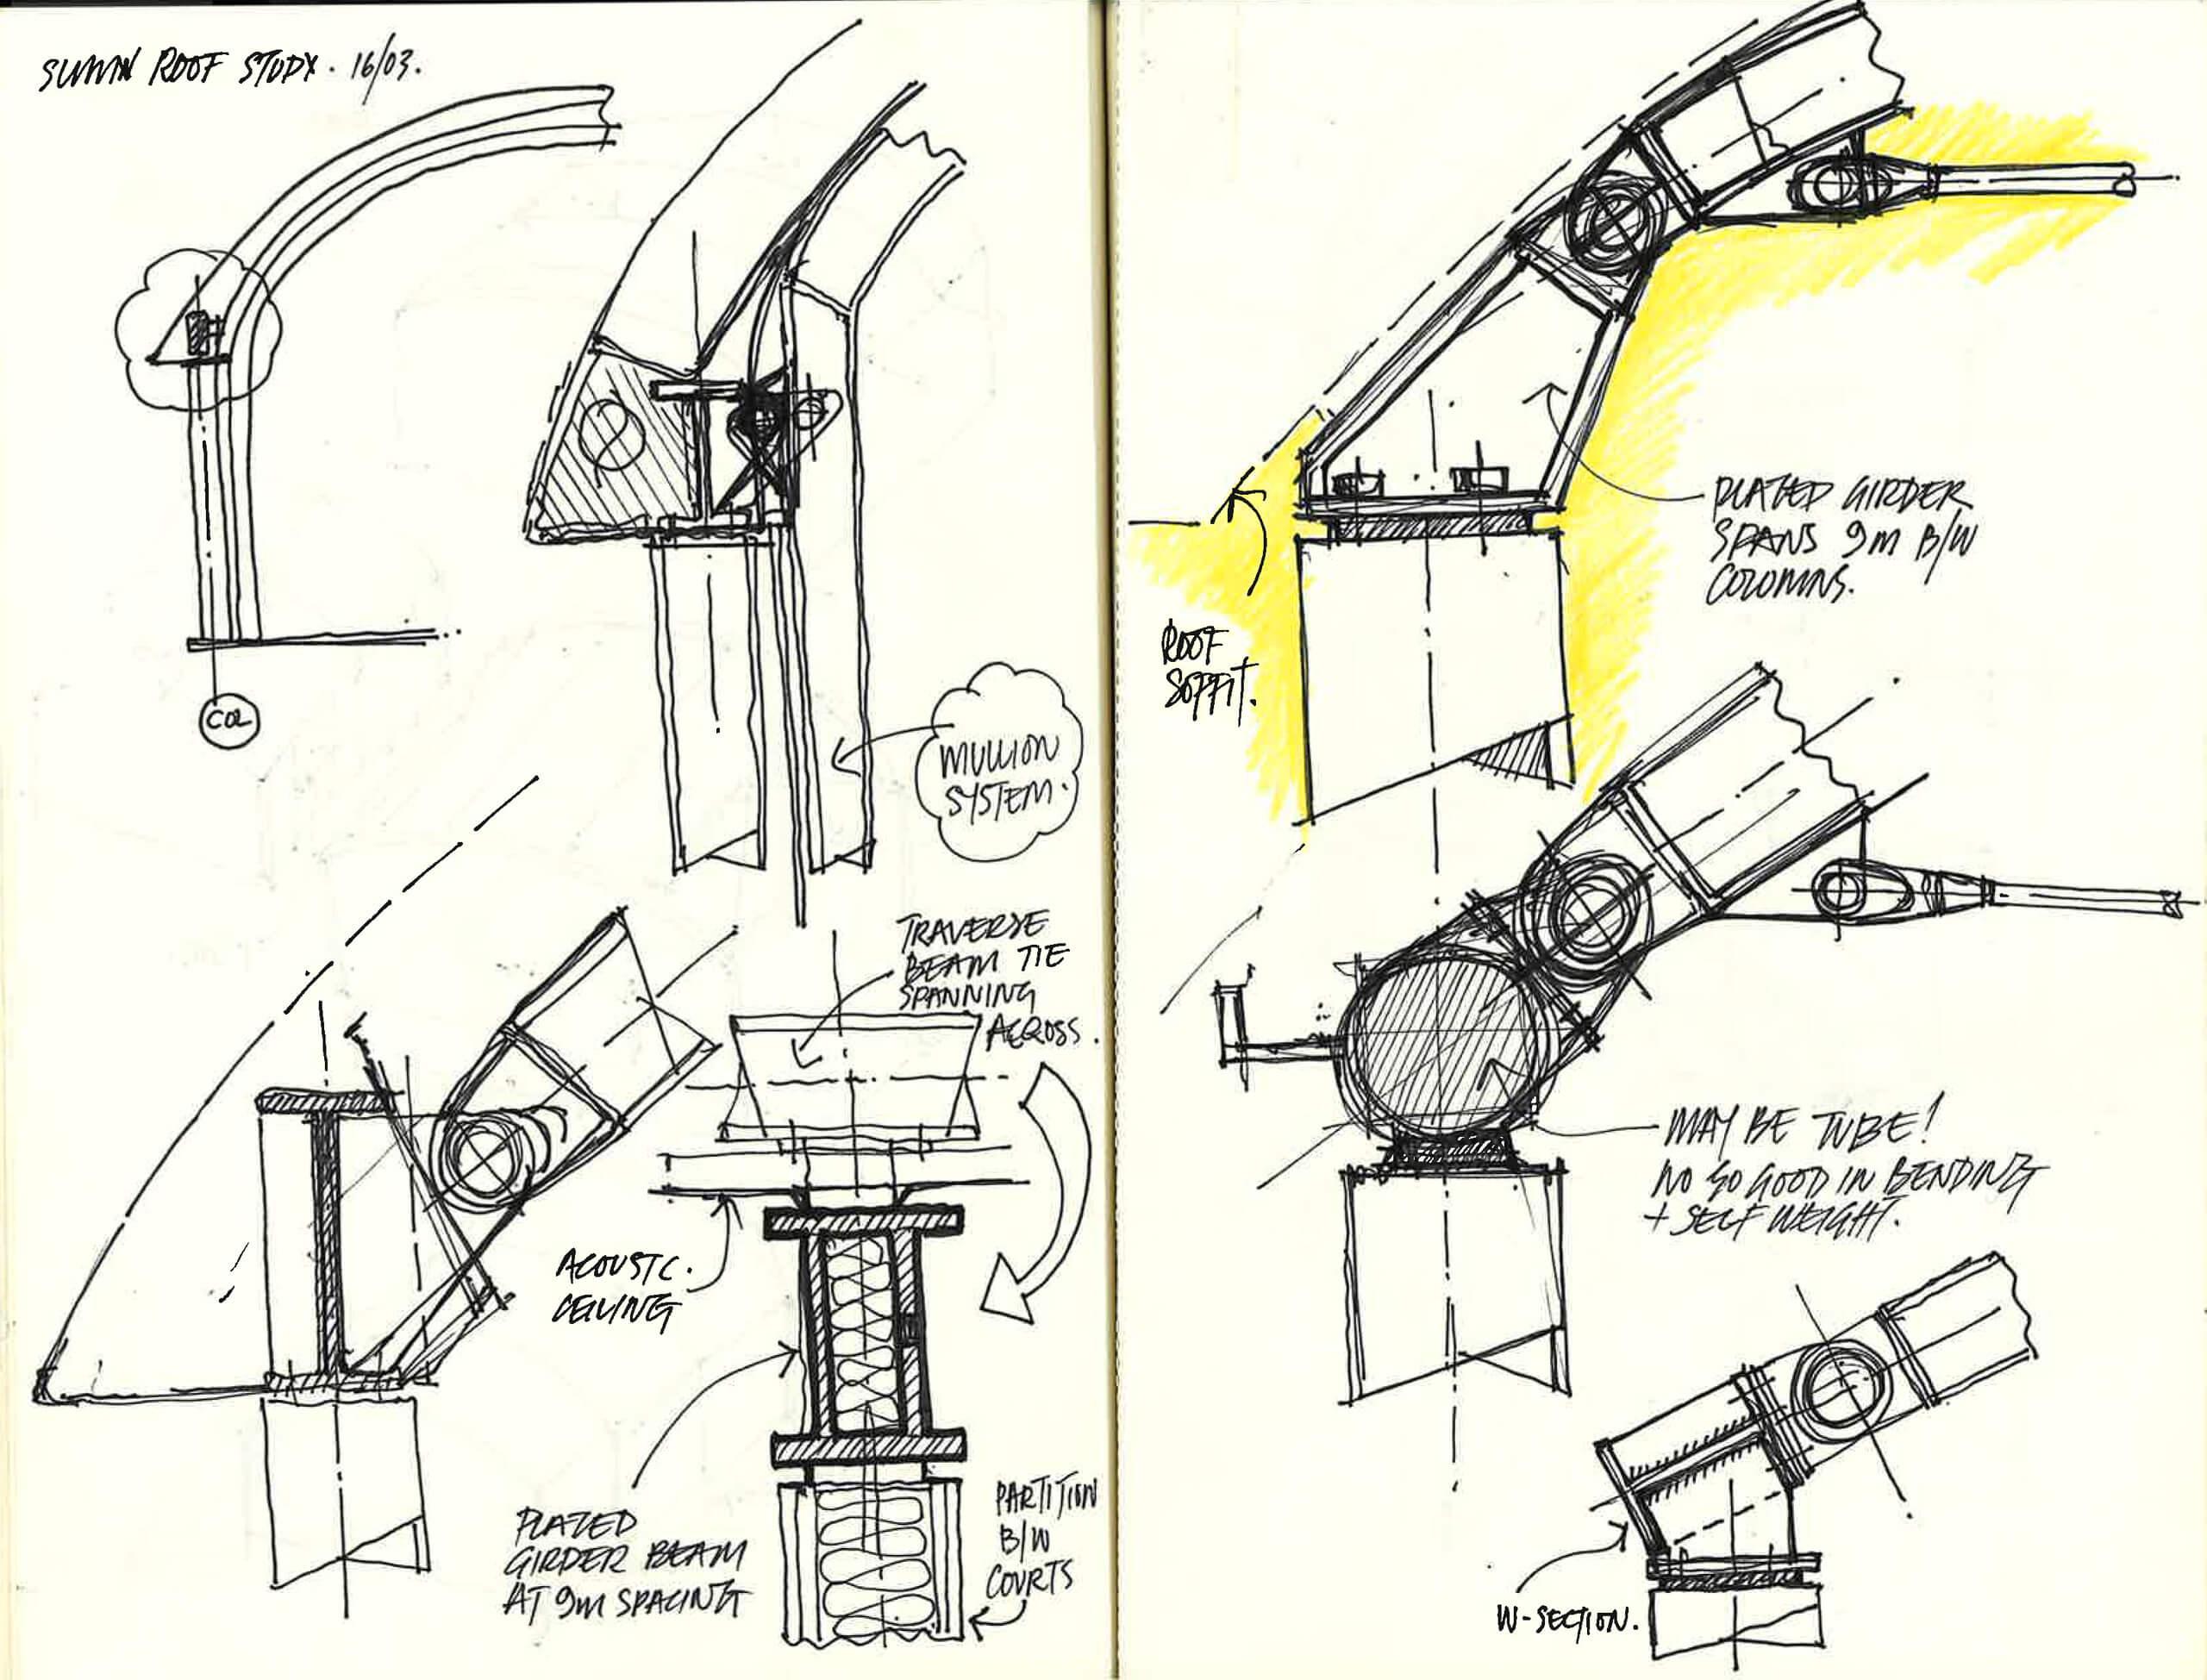 ROOF STUDY. 16/03.
COL
MULLION
SYSTEM.
TRAVERSE
BEAM TIE
SPANNING
ACROSS.
ACOUSTC.
CEILING
PLATED
GIRDER BEAM
AT 9m SPACING
PARTITION
B/W
COURTS
PLATED GIRDER
SPANS 9m B/W
COLOMNS.
ROOF
SOFFIT.
MAY BE TUBE!
NO SO GOOD IN BENDING
+ SELF WEIGHT.
W-SECTION.